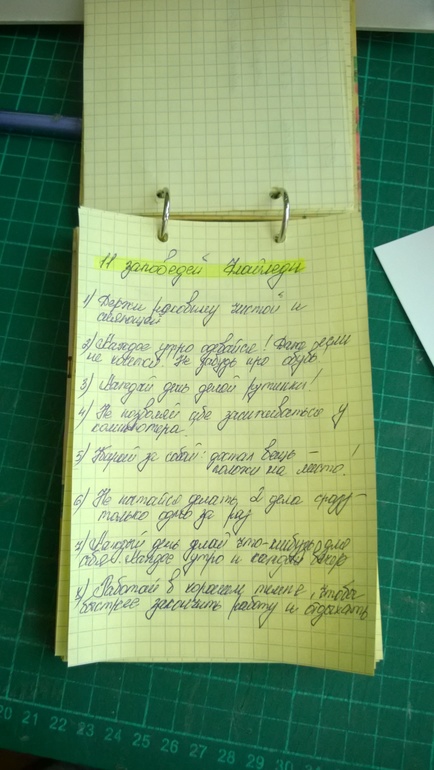 11 заповедей Флайледи
1) Держи раковину чистой и
сияющей
2) Каждое утро одевайся! Даже если
не хочется. Не забудь про обувь
3) Каждый день делай рутинки!
4) Не позволяй себе засиживаться у
компьютера
5) Убирай за собой: достал вещь –
положи на место!
6) Не пытайся делать 2 дела сразу –
только одно за раз
7) Каждый день делай что-нибудь для
себя. Каждое утро и каждый вечер
8) Работай в хорошем темпе, чтобы
быстрее закончить работу и отдыхать
20 21 22 23 24 25 26 27 28 29 30